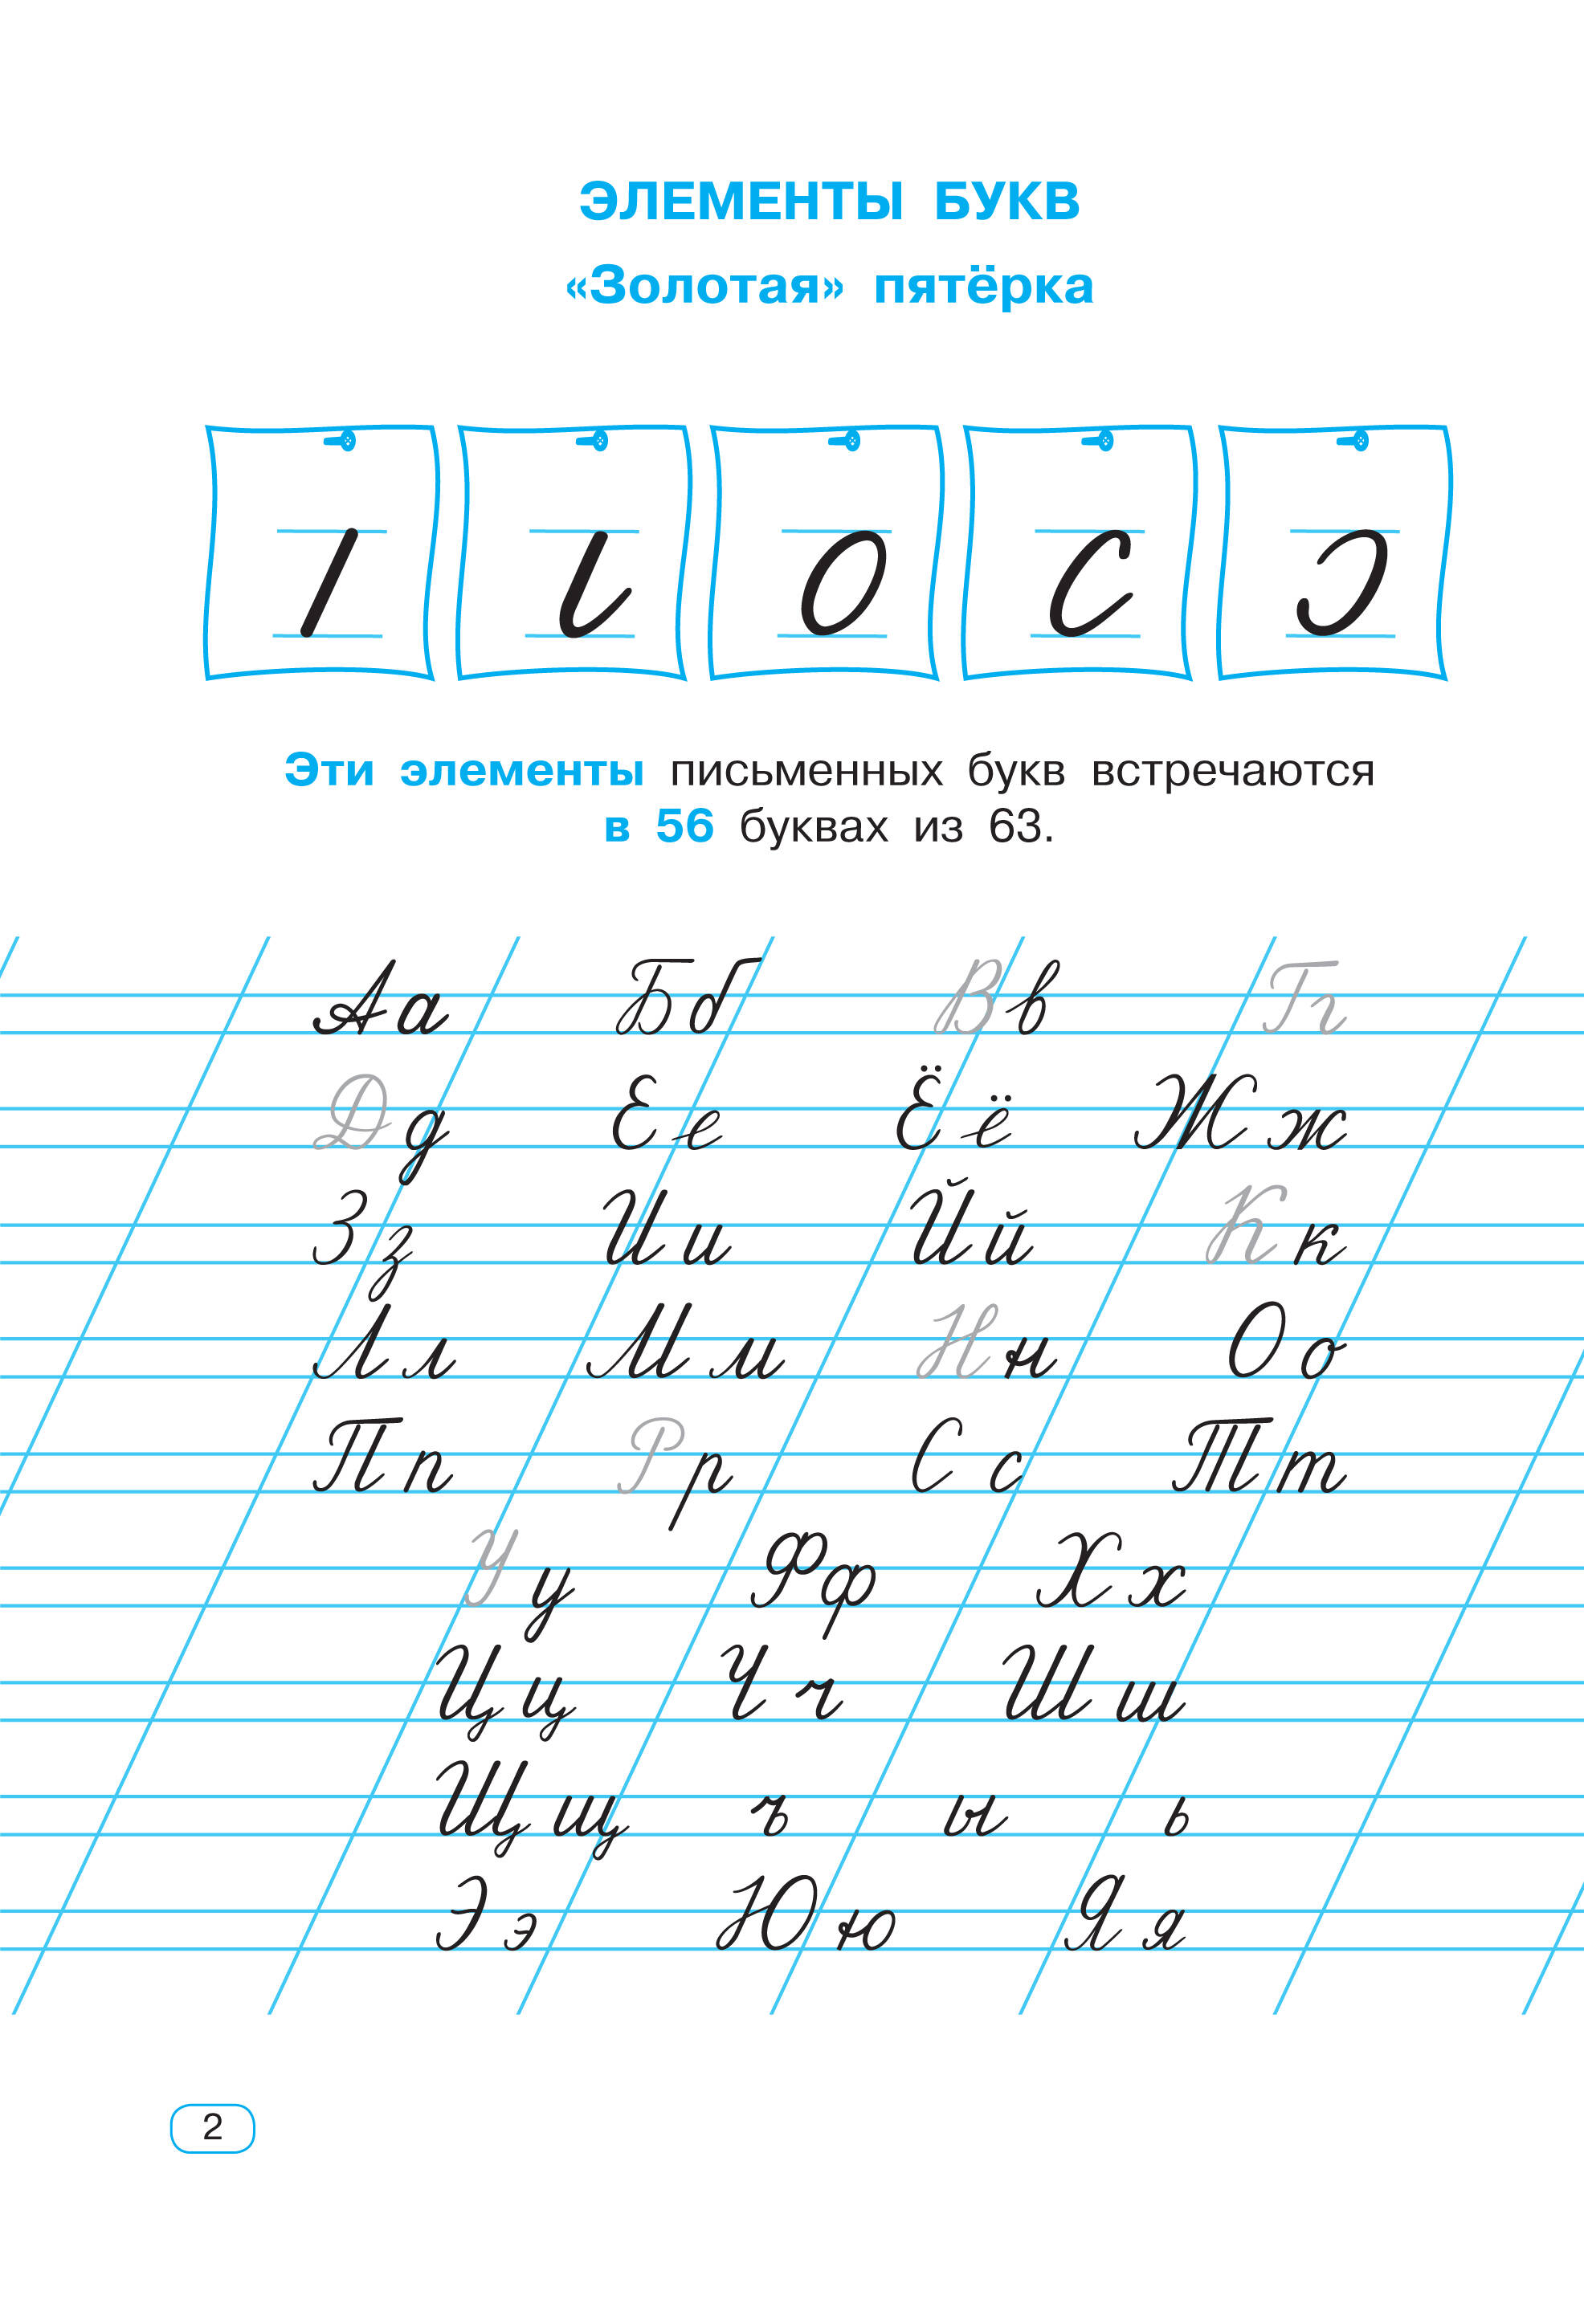 ЭЛЕМЕНТЫ БУКВ
«Золотая» пятёрка
Эти элементы письменных букв встречаются
в 56 буквах из 63.
Аа Бб Вв Гг
Дд Ее Ёё Жж
Зз Ии Йй Кк
Лл Мм Нн Оо
Пп Рр Сс Тт
Уу Фф Хх
Цц Чч Шш
Щщ ъ ы ь
Ээ Юю Яя
2